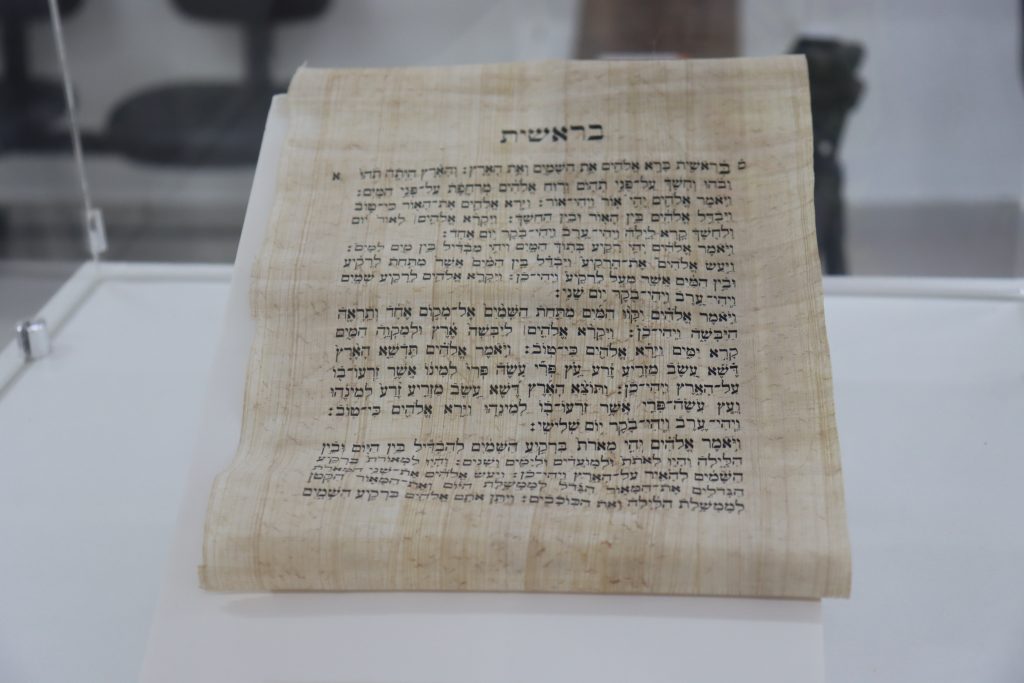 בראשית
בְּרֵאשִׁית בָּרָא אֱלֹהִים אֵת הַשָּׁמַיִם וְאֵת הָאָרֶץ׃ וְהָאָרֶץ הָיְתָה תֹהוּ א
וָבֹהוּ וְחֹשֶׁךְ עַל־פְּנֵי תְהוֹם וְרוּחַ אֱלֹהִים מְרַחֶפֶת עַל־פְּנֵי הַמָּיִם׃
וַיֹּאמֶר אֱלֹהִים יְהִי אוֹר וַיְהִי־אוֹר׃ וַיַּרְא אֱלֹהִים אֶת־הָאוֹר כִּי־טוֹב
וַיַּבְדֵּל אֱלֹהִים בֵּין הָאוֹר וּבֵין הַחֹשֶׁךְ׃ וַיִּקְרָא אֱלֹהִים׀ לָאוֹר יוֹם
וְלַחֹשֶׁךְ קָרָא לָיְלָה וַיְהִי־עֶרֶב וַיְהִי־בֹקֶר יוֹם אֶחָד׃
וַיֹּאמֶר אֱלֹהִים יְהִי רָקִיעַ בְּתוֹךְ הַמָּיִם וִיהִי מַבְדִּיל בֵּין מַיִם לָמָיִם׃
וַיַּעַשׂ אֱלֹהִים אֶת־הָרָקִיעַ וַיַּבְדֵּל בֵּין הַמַּיִם אֲשֶׁר מִתַּחַת לָרָקִיעַ
וּבֵין הַמַּיִם אֲשֶׁר מֵעַל לָרָקִיעַ וַיְהִי־כֵן׃ וַיִּקְרָא אֱלֹהִים לָרָקִיעַ שָׁמָיִם
וַיְהִי־עֶרֶב וַיְהִי־בֹקֶר יוֹם שֵׁנִי׃
וַיֹּאמֶר אֱלֹהִים יִקָּווּ הַמַּיִם מִתַּחַת הַשָּׁמַיִם אֶל־מָקוֹם אֶחָד וְתֵרָאֶה
הַיַּבָּשָׁה וַיְהִי־כֵן׃ וַיִּקְרָא אֱלֹהִים׀ לַיַּבָּשָׁה אֶרֶץ וּלְמִקְוֵה הַמַּיִם
קָרָא יַמִּים וַיַּרְא אֱלֹהִים כִּי־טוֹב׃ וַיֹּאמֶר אֱלֹהִים תַּדְשֵׁא הָאָרֶץ
דֶּשֶׁא עֵשֶׂב מַזְרִיעַ זֶרַע עֵץ פְּרִי עֹשֶׂה פְּרִי לְמִינוֹ אֲשֶׁר זַרְעוֹ־בוֹ
עַל־הָאָרֶץ וַיְהִי־כֵן׃ וַתּוֹצֵא הָאָרֶץ דֶּשֶׁא עֵשֶׂב מַזְרִיעַ זֶרַע לְמִינֵהוּ
וְעֵץ עֹשֶׂה־פְּרִי אֲשֶׁר זַרְעוֹ־בוֹ לְמִינֵהוּ וַיַּרְא אֱלֹהִים כִּי־טוֹב׃
וַיְהִי־עֶרֶב וַיְהִי־בֹקֶר יוֹם שְׁלִישִׁי׃
וַיֹּאמֶר אֱלֹהִים יְהִי מְאֹרֹת בִּרְקִיעַ הַשָּׁמַיִם לְהַבְדִּיל בֵּין הַיּוֹם וּבֵין
הַלָּיְלָה וְהָיוּ לְאֹתֹת וּלְמוֹעֲדִים וּלְיָמִים וְשָׁנִים׃ וְהָיוּ לִמְאוֹרֹת בִּרְקִיעַ
הַשָּׁמַיִם לְהָאִיר עַל־הָאָרֶץ וַיְהִי־כֵן׃ וַיַּעַשׂ אֱלֹהִים אֶת־שְׁנֵי הַמְּאֹרֹת
הַגְּדֹלִים אֶת־הַמָּאוֹר הַגָּדֹל לְמֶמְשֶׁלֶת הַיּוֹם וְאֶת־הַמָּאוֹר הַקָּטֹן
לְמֶמְשֶׁלֶת הַלַּיְלָה וְאֵת הַכּוֹכָבִים׃ וַיִּתֵּן אֹתָם אֱלֹהִים בִּרְקִיעַ הַשָּׁמָיִם